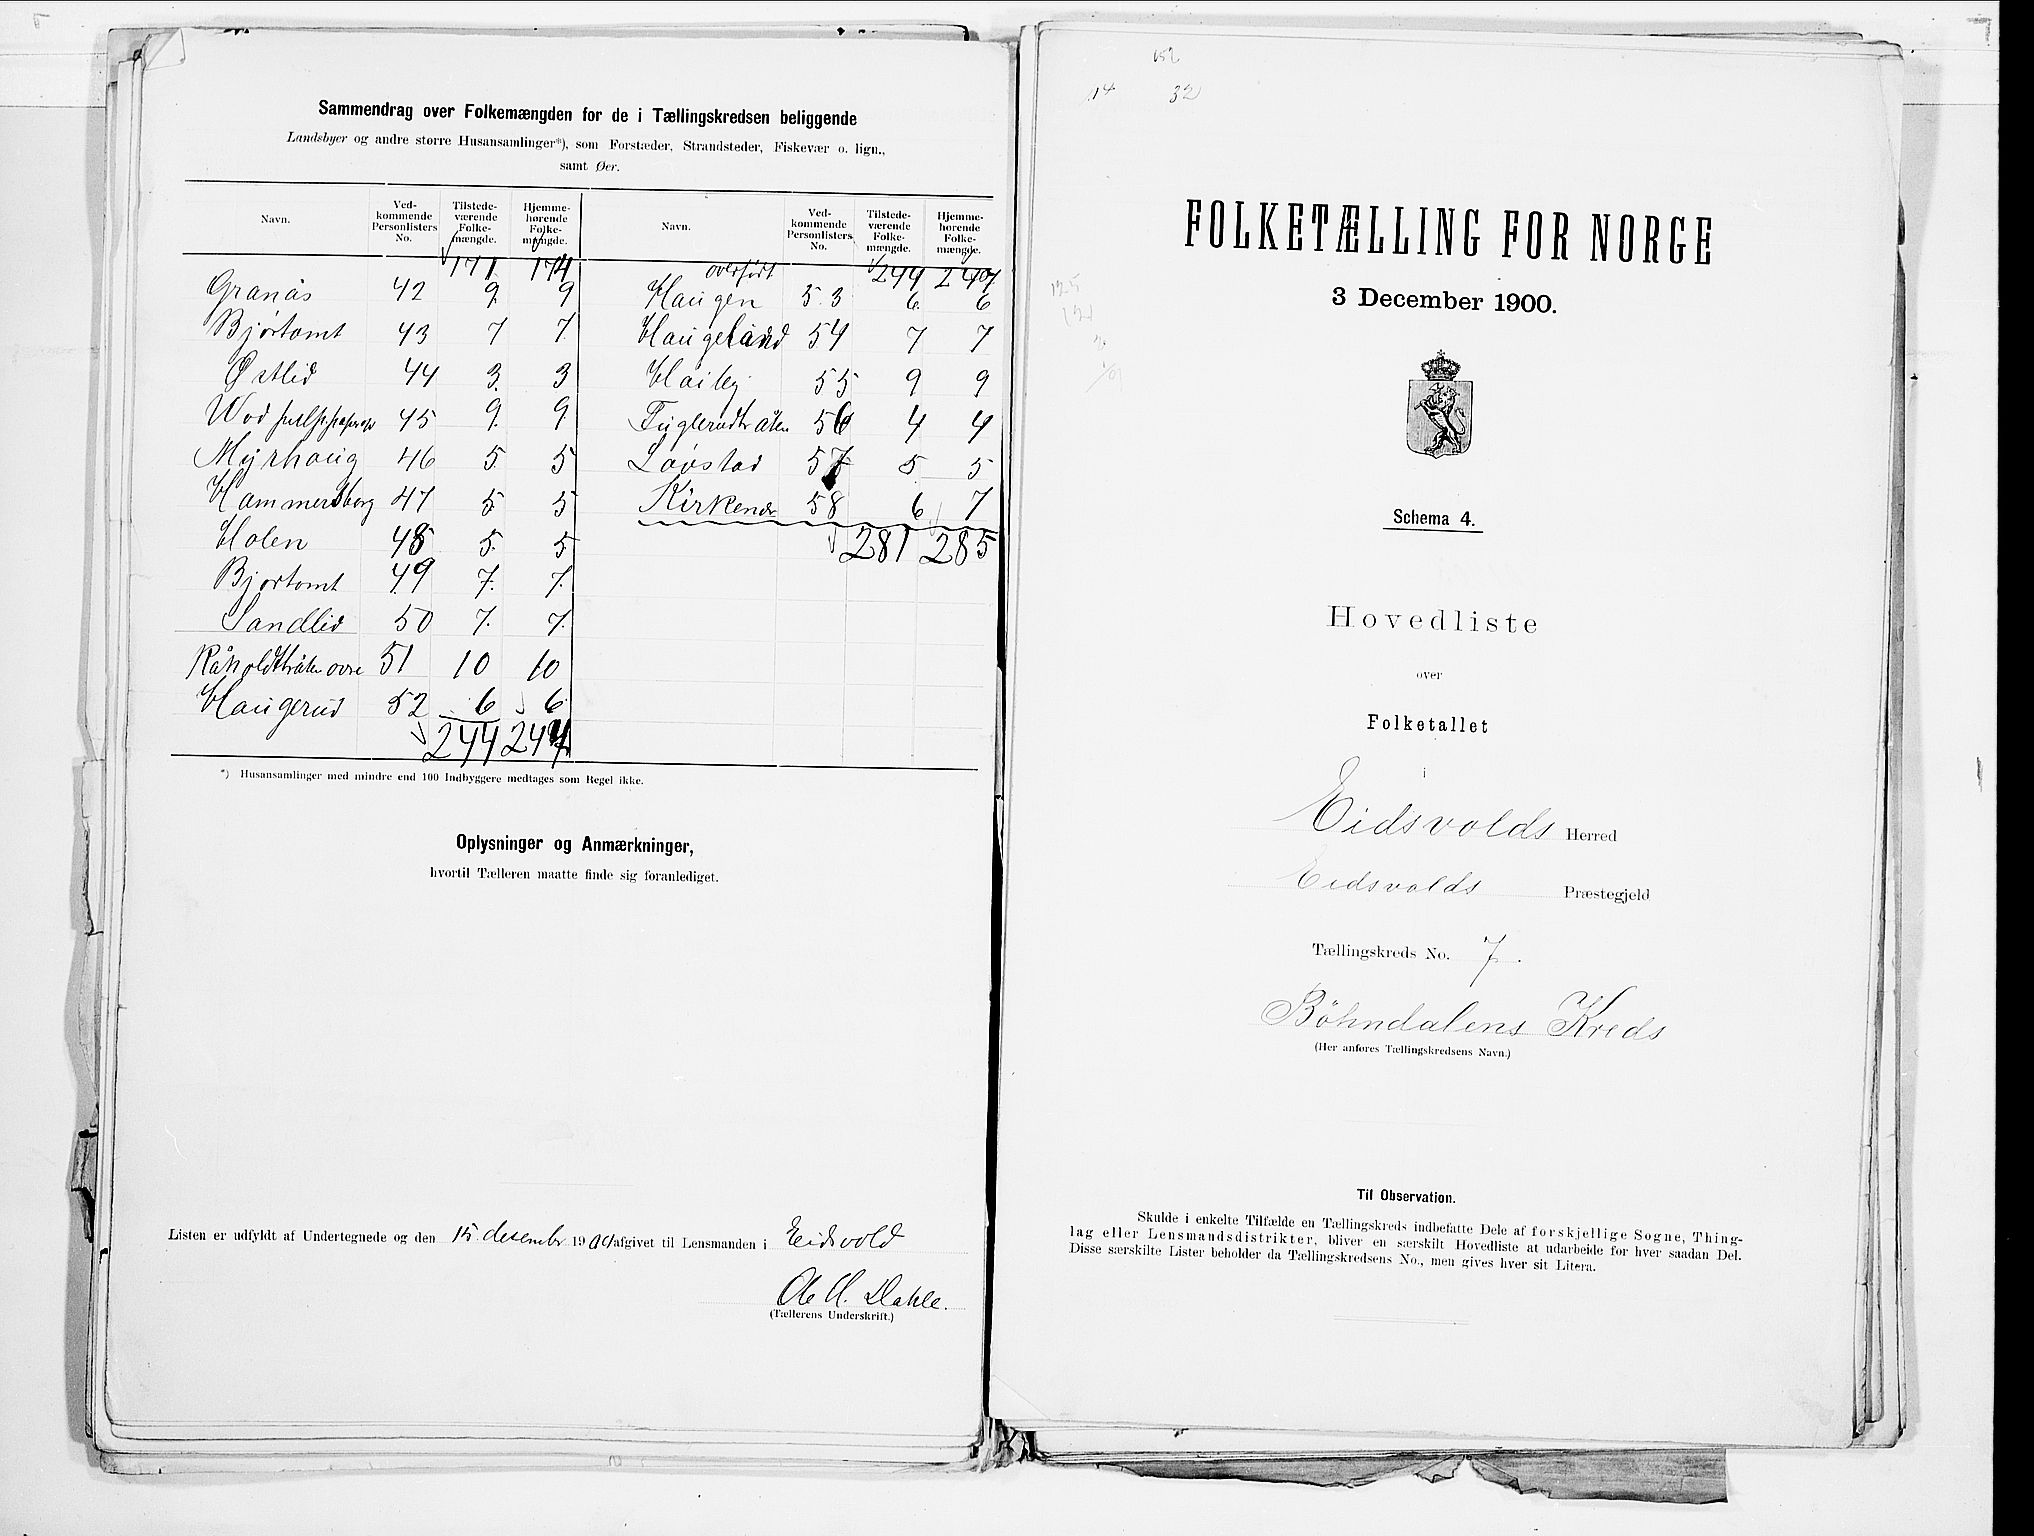 Sammendrag over Folkemængden for de i Tællingskredsen beliggende
Landsbyer og andre større Husansamlinger*), som Forstæder, Strandsteder, Fiskevær o. lign.,
samt Øer.
Navn. Ved-kommende Personlisters No. Tilstede-værende Folke-mængde. Hjemme-hørende Folke-mængde.
171 174
Granås 42 9 9
Bjørtomt 43 7 7
Østlid 44 3 3
45 9 9
Myrhaug 46 5 5
Hammersborg 47 5 5
Holen 48 5 5
Bjørtomt 49 7 7
Sandlid 50 7 7
Råholdtråten ovre 51 10 10
Haugerud 52 6 6
244 247
Navn. Ved-kommende Personlisters No. Tilstede-værende Folke-mængde. Hjemme-hørende Folke-mængde.
overført 244 247
Haugen 53 6 6
Haugeland 54 7 7
55 9 9
Fuglerudtråten 56 4 4
Løvstad 57 5 5
58 6 7
281 285
*) Husansamlinger med mindre end 100 Indbyggere medtages som Regel ikke.
Oplysninger og Anmærkninger,
hvortil Tælleren maatte finde sig foranlediget.
Listen er udfyldt af Undertegnede og den 15 desembr 1900 afgivet til Lensmanden i Eidsvold
Ole H. Dahle.
(Tællerens Underskrift.)
152
14 32
FOLKETÆLLING FOR NORGE
3 December 1900.
Schema 4.
Hovedliste
over
Folketallet
i
Eidsvolds Herred
Eidsvolds Præstegjeld
Tællingskreds No. 7.
Böhndalens Kreds
(Her anføres Tællingskredsens Navn.)
Til Observation.
Skulde i enkelte Tilfælde en Tællingskreds indbefatte Dele af forskjellige Sogne, Thing-
lag eller Lensmandsdistrikter, bliver en særskilt Hovedliste at udarbeide for hver saadan Del.
Disse særskilte Lister beholder da Tællingskredsens No., men gives hver sit Litera.